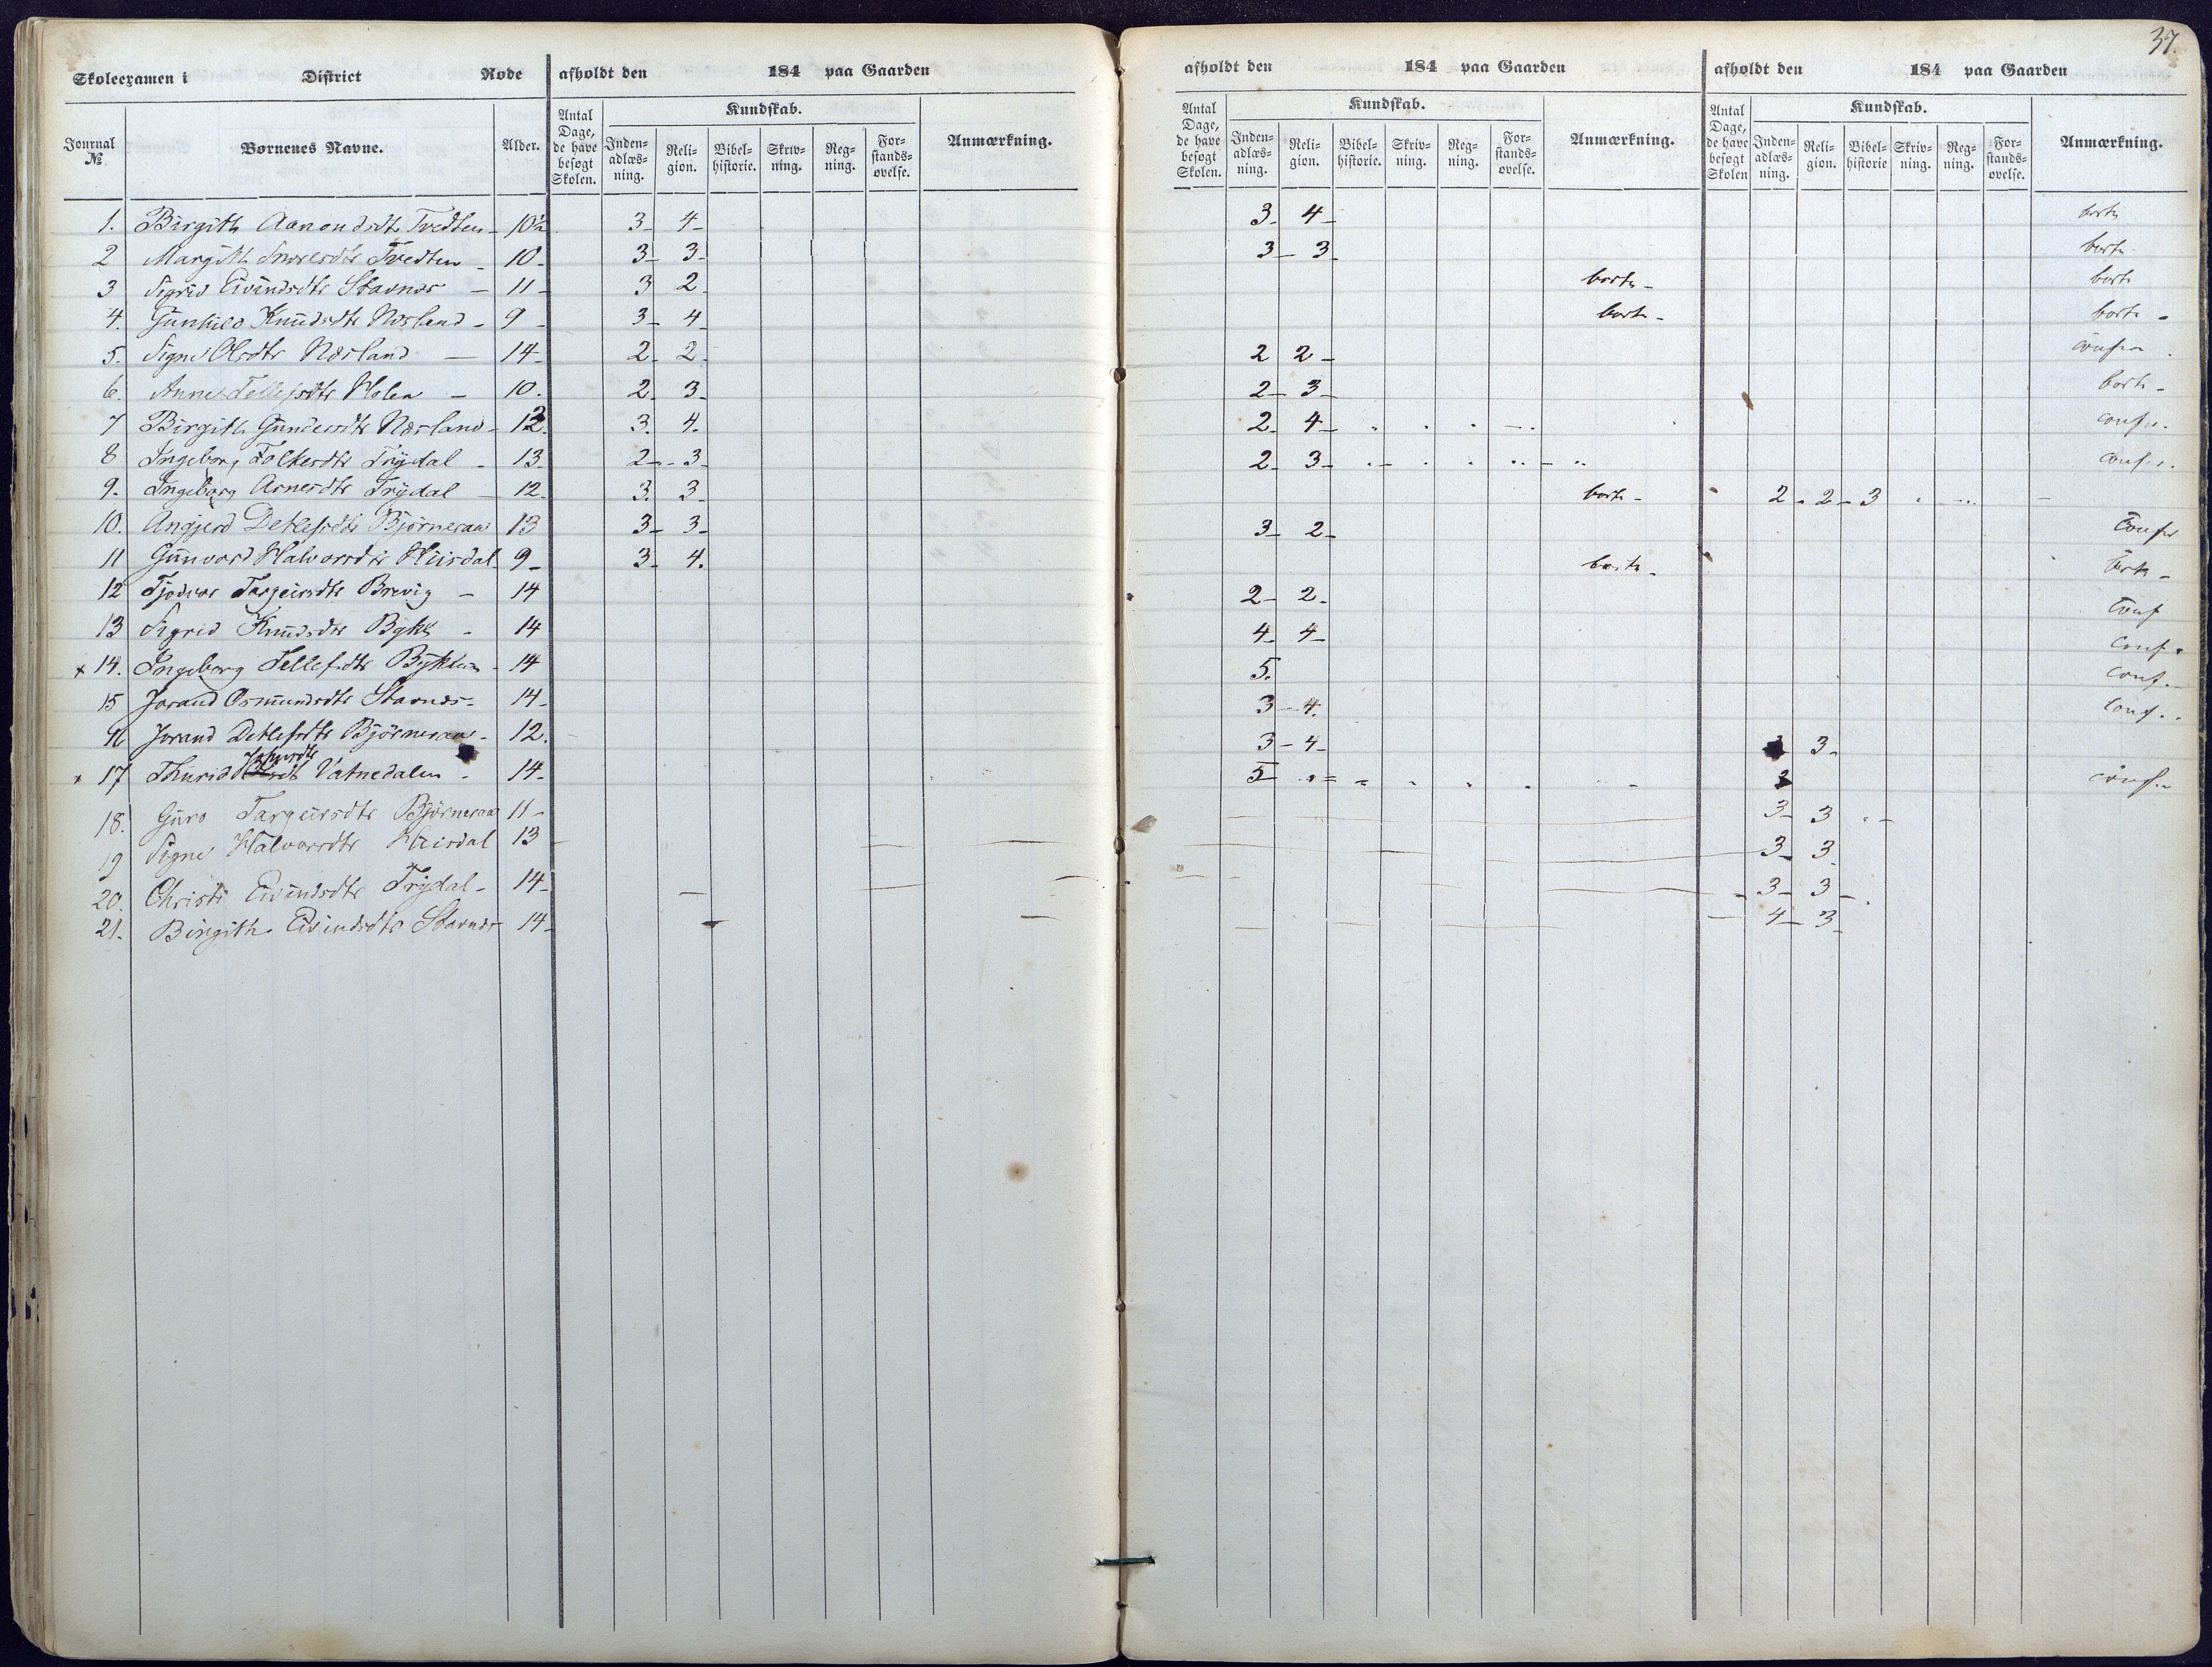 37.
Skoleexamen i District Rode afholdt den 184 paa Gaarden afholdt den 184 paa Gaarden afholdt den 184 paa Gaarden
Journal № Børnenes Navne. Alder. Antal Dage, de have besøgt Skolen. Kundskab. Inden-adlæs-ning. Reli-gion. Bibel-historie. Skriv-ning. Reg-ning. For-stands-øvelse. Anmærkning. Antal Dage, de have besøgt Skolen. Kundskab. Inden-adlæs-ning. Reli-gion. Bibel-historie. Skriv-ning. Reg-ning. For-stands-øvelse. Anmærkning. Antal Dage, de have besøgt Skolen Kundskab. Inden-adlæs-ning. Reli-gion. Bibel-historie Skriv-ning. Reg-ning. For-stands-øvelse. Anmærkning.
1. Birgith Aanondsdtr Tvedten - 10½ 3 - 4 - 3 - 4 - borte
2 Margith Tvedten - 10 - 3 - 3 - 3 - 3 borte
3 Sigrid Eivindsdtr Stavnes - 11 - 3 2 - borte - borte
4. Gunhild Knudsdtr Næsland - 9 - 3 - 4 - borte - borte -
5. Signe Olsdtr Næsland - 14 - 2 - 2 - 2 2 -
6. Anne Tellefsdtr Holen - 10. 2 - 3 - 2 - 3 - borte -
7 Birgith Gundersdtr Næsland - 12. 3. 4. 2 - 4 - confr.
8 Ingeborg Folkesdtr Trydal - 13 - 2 - 3 - 2 - 3 - confr.
9. Ingeborg Arnesdtr Trydal - 12 - 3. 3 - borte - 2 - 2 - 3
10. Angjerd Detlefsdtr Bjørneraa 13 3 - 3 - 3 - 2 - Confr
11 Gunvord Halvorsdtr Huisdal 9 - 3 - 4. borte - borte -
12 Targeirsdtr Breivig - 14 2 - 2 - Conf
13 Sigrid Knudsdtr Bykle - 14 4 - 4 - Conf.
x 14. Ingeborg Tellefsdtr Byklum - 14 5. Conf. -
15 Jorand Osmundsdtr Stavnes - 14 - 3 - 4. Conf.
16 Jorand Detlefsdtr Bjørneraa - 12. 3 - 4 - 3 -
x 17 Thurid Vatnedalen - 14 - 5 conf.
18. Guro Targeirsdtr Bjørneraa 11 - 3 - 3
19 Signe Halvorsdtr Huisdal 13 3 - 3
20. Christi Eivindsdtr Trydal - 14 - 3 - 3 -
21. Birgith Eivindsdtr Stavnes 14 - 4 - 3 -